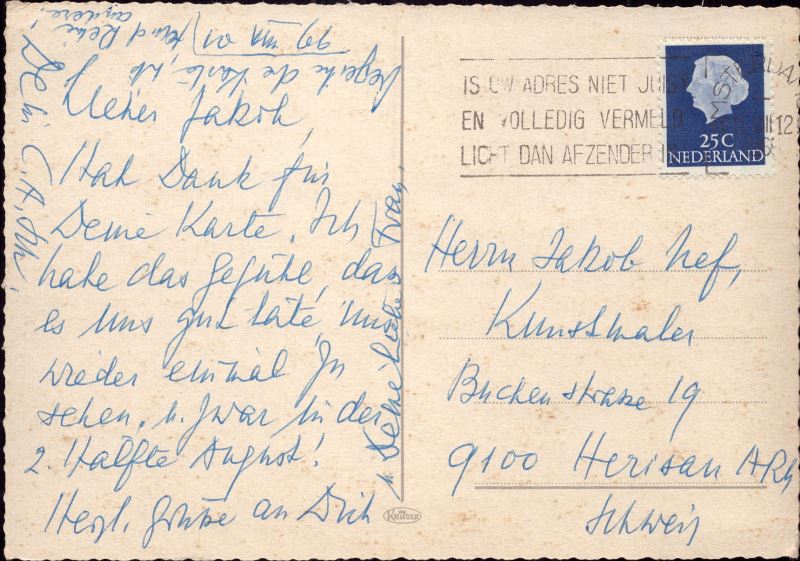 Lieber Jakob,
Hab Dank für
Deine Karte. Ich
habe das Gefühl, dass
es uns gut täte, uns
wieder einmal zu
sehen, u. zwar in der
2. Hälfte August!
Herzl. Grüsse an Dich
u. Deine liebe Frau,
Dein C.A.
die Karte
KRÜGER
IS UW ADRES NIET JUIST
EN VOLLEDIG VERMELD
LICHT DAN AFZENDER IN
AMSTERDAM
25C
NEDERLAND
Herrn Jakob Nef,
Kunstmaler
Buchenstrasse 19
9100 Herisau ARh
Schweiz